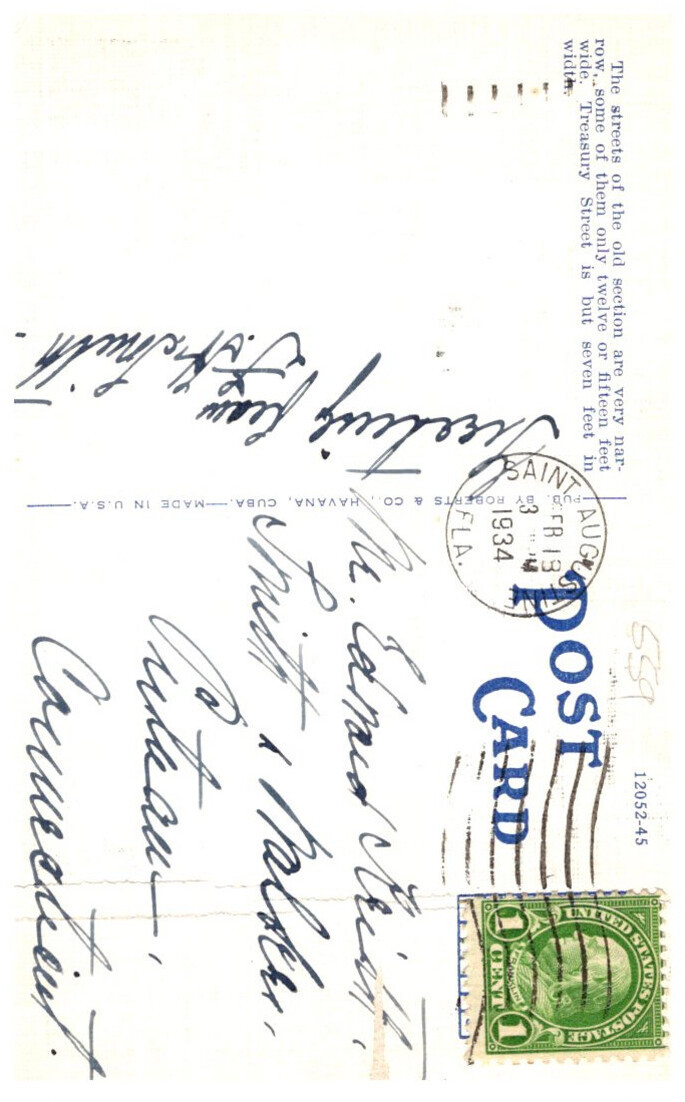 The streets of the old section are very nar-
row, some of them only twelve or fifteen feet
wide. Treasury Street is but seven feet in
width.
POST
CARD
12052-45
559
SAINT AUGUSTINE
FEB 13
3 PM
1934
FLA.
UNITED STATES POSTAGE
FRANKLIN
1 CENT 1
PUB. BY ROBERTS & CO., HAVANA, CUBA.—MADE IN U.S.A.
Greeting
from
Smith.
Mr. Edward Smith,
Smith &
Putnam,
Connecticut.